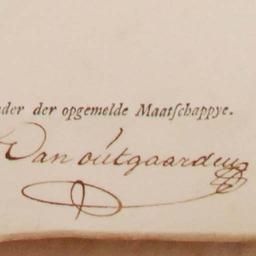 der der opgemelde Maatſchappye.
Van oútgaarden